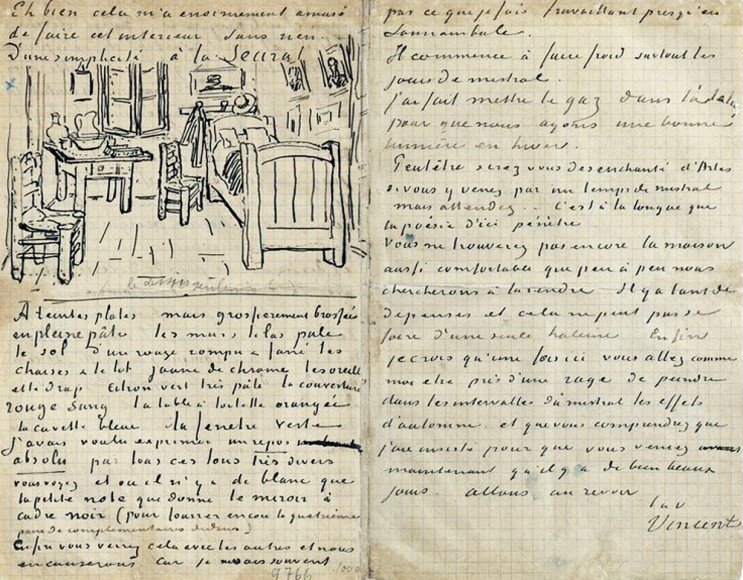 Eh bien cela m'a enormement amusé
de faire cet interieur sans rien.
D'une simplicité à la Seurat
A teintes plates mais grossierement brossées
en pleine pâte les murs lilas pale
le sol d'un rouge rompu & fané les
chaises & le lit jaune de chrome les oreillers
et le drap citron vert très pâle la couverture
rouge sang la table à toilette orangée
la cuvette bleue la fenêtre verte
J'avais voulu exprimer un repos
absolu par tous ces tons très divers
vous voyez et où il n'y a de blanc que
la petite note que donne le miroir à
cadre noir (pour fourrer encore la quatrième
paire de complémentaires dedans)
Enfin vous verrez cela avec les autres et nous
en causerons car je ne sais souvent
9766
pas ce que je fais travaillant presqu'en
somnambule.
Il commence à faire froid surtout les
jours de mistral.
J'ai fait mettre le gaz dans l'atelier
pour que nous ayons une bonne
lumière en hiver.
Peutêtre serez vous desenchanté d'Arles
si vous y venez par un temps de mistral
mais attendez.. C'est à la longue que
la poésie d'ici pénètre
Vous ne trouverez pas encore la maison
aussi comfortable que peu à peu nous
chercherons à la rendre Il y a tant de
dépenses et cela ne peut pas se
faire d'une seule haleine Enfin
je crois qu'une fois ici vous allez comme
moi etre pris d'une rage de peindre
dans les intervalles du mistral les effets
d'automne. et que vous comprendrez que
j'aie insisté pour que vous veniez
maintenant qu'il y a de bien beaux
jours. allons au revoir
t. à v.
Vincent